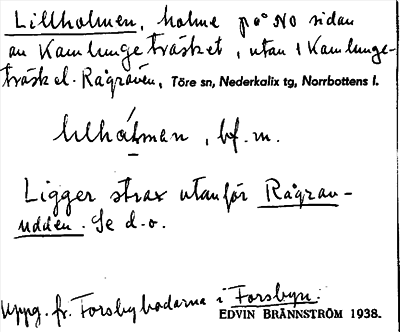 Lillholmen, holme på NO sidan
av Kamlungeträsket, utan i Kamlunge-
träsk el. Rågraven, Töre sn, Nederkalix tg, Norrbottens l.
lılhåłman, bf. m.
Ligger strax utanför Rågrav-
udden. Se d.o.
Uppg. fr. Forsbybodarna i Forsbyn.
EDVIN BRÄNNSTRÖM 1938.